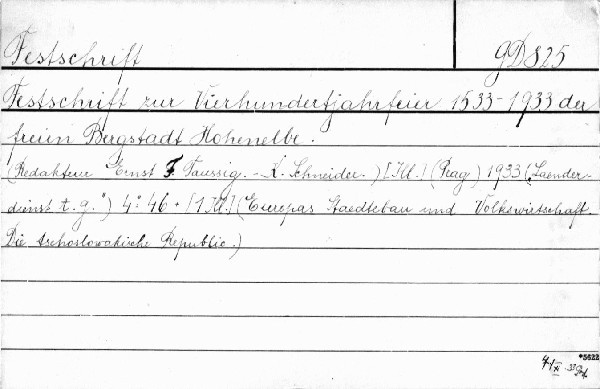 Festschrift GD 825
Festschrift zur Vierhundertjahrfeier 1533-1933 der
freien Bergstadt Hohenelbe.
(Redakteur Ernst F. Taussig. - K. Schneider.) [Ill.] (Prag) 1933 (Laender-
dienst t. g.") 4° 46 + [1 Ill.] (Europas Staedtebau und Volkswirtschaft.
Die tschoslowakische Republic.)
*5622
41